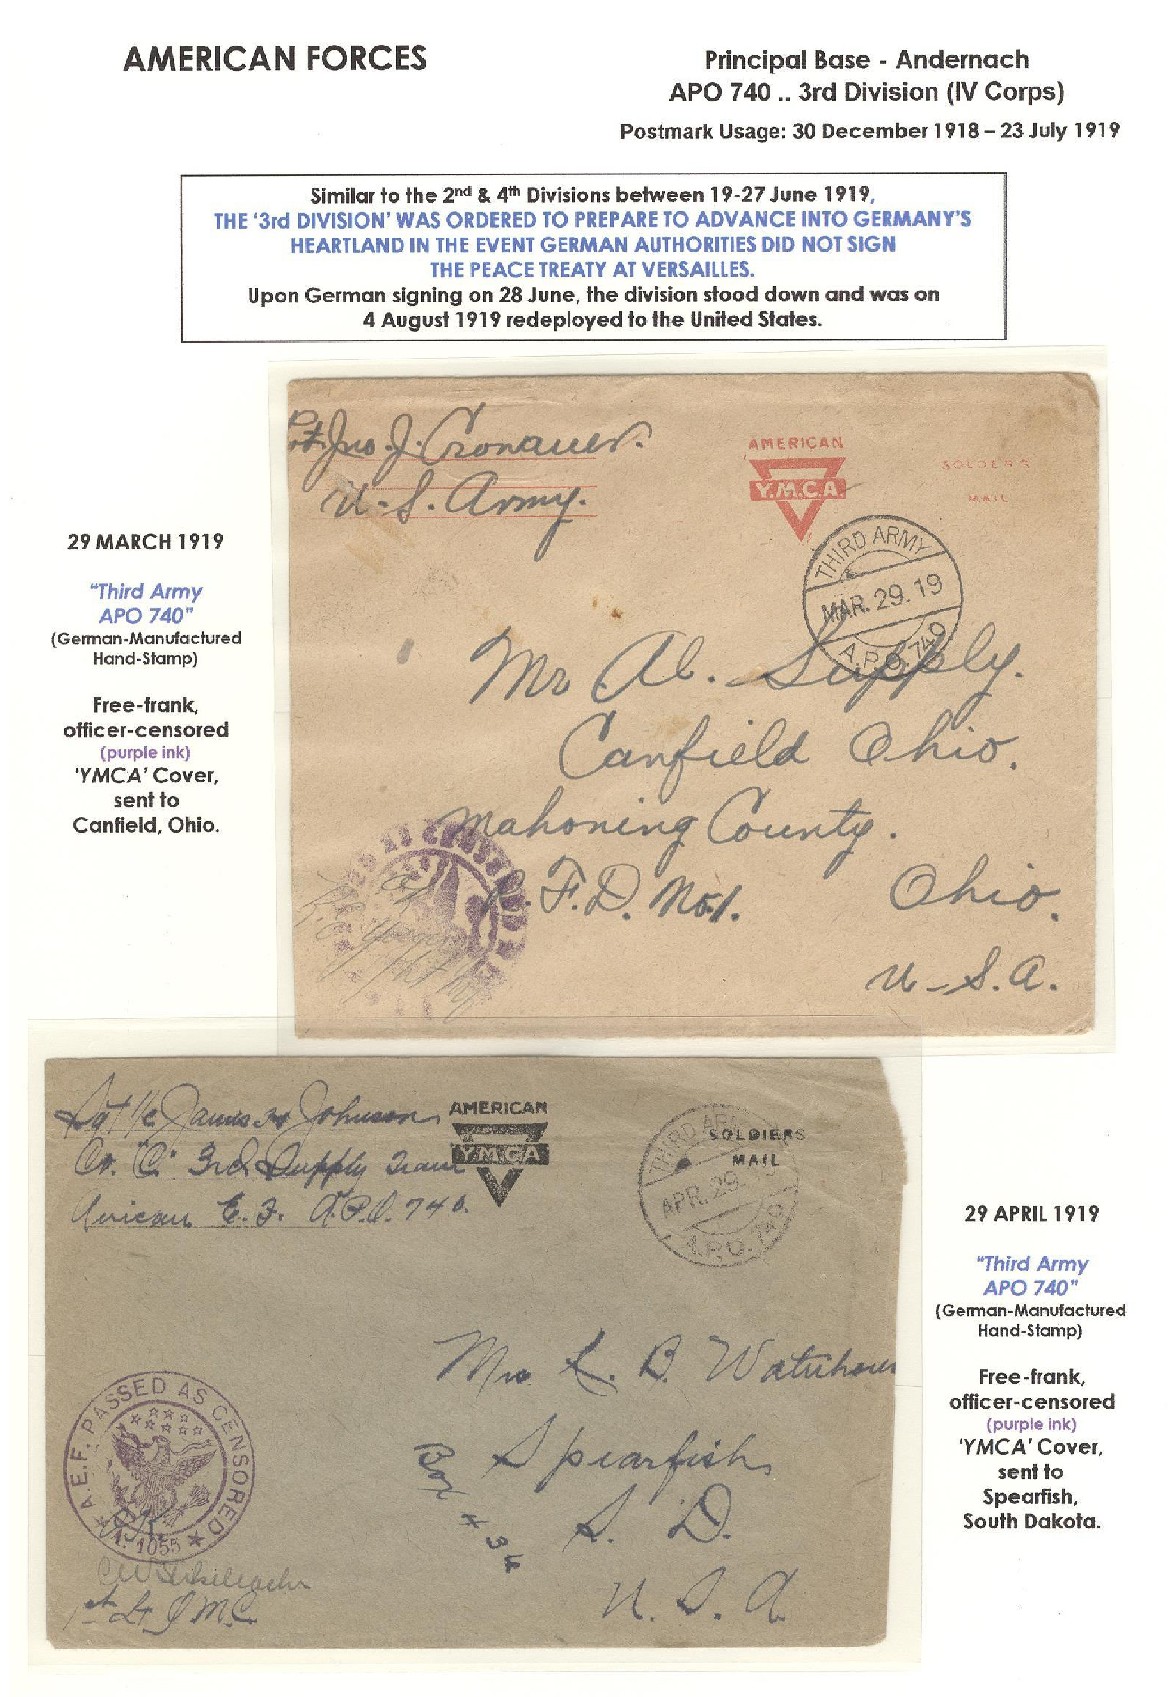 AMERICAN FORCES
Principal Base - Andernach
APO 740 .. 3rd Division (IV Corps)
Postmark Usage: 30 December 1918 – 23 July 1919
Similar to the 2nd & 4th Divisions between 19-27 June 1919,
THE '3rd DIVISION' WAS ORDERED TO PREPARE TO ADVANCE INTO GERMANY'S
HEARTLAND IN THE EVENT GERMAN AUTHORITIES DID NOT SIGN
THE PEACE TREATY AT VERSAILLES.
Upon German signing on 28 June, the division stood down and was on
4 August 1919 redeployed to the United States.
29 MARCH 1919
"Third Army
APO 740"
(German-Manufactured
Hand-Stamp)
Free-frank,
officer-censored
(purple ink)
'YMCA' Cover,
sent to
Canfield, Ohio.
Pvt. Jno. J. Cronauer.
U-S. Army.
AMERICAN
Y.M.C.A.
SOLDIERS
MAIL
THIRD ARMY
MAR. 29. 19
A.P.O. 740
Mr Al. Supply.
Canfield Ohio.
Mahoning County.
R.F.D. No.1.
Ohio.
U-S.A.
Sgt 1/c James H Johnson
Co. "C" 3rd Supply Train
American E.F. A.P.O. 740.
AMERICAN
Y.M.C.A
SOLDIERS
MAIL
THIRD ARMY
APR. 29. 19
A.P.O. 740
Mrs L. B. Waterhouse
Spearfish
S. D.
U. S. A.
Box #34
A.E.F. PASSED AS CENSORED
A. 1055
1st Lt Q M.C.
29 APRIL 1919
"Third Army
APO 740"
(German-Manufactured
Hand-Stamp)
Free-frank,
officer-censored
(purple ink)
'YMCA' Cover,
sent to
Spearfish,
South Dakota.